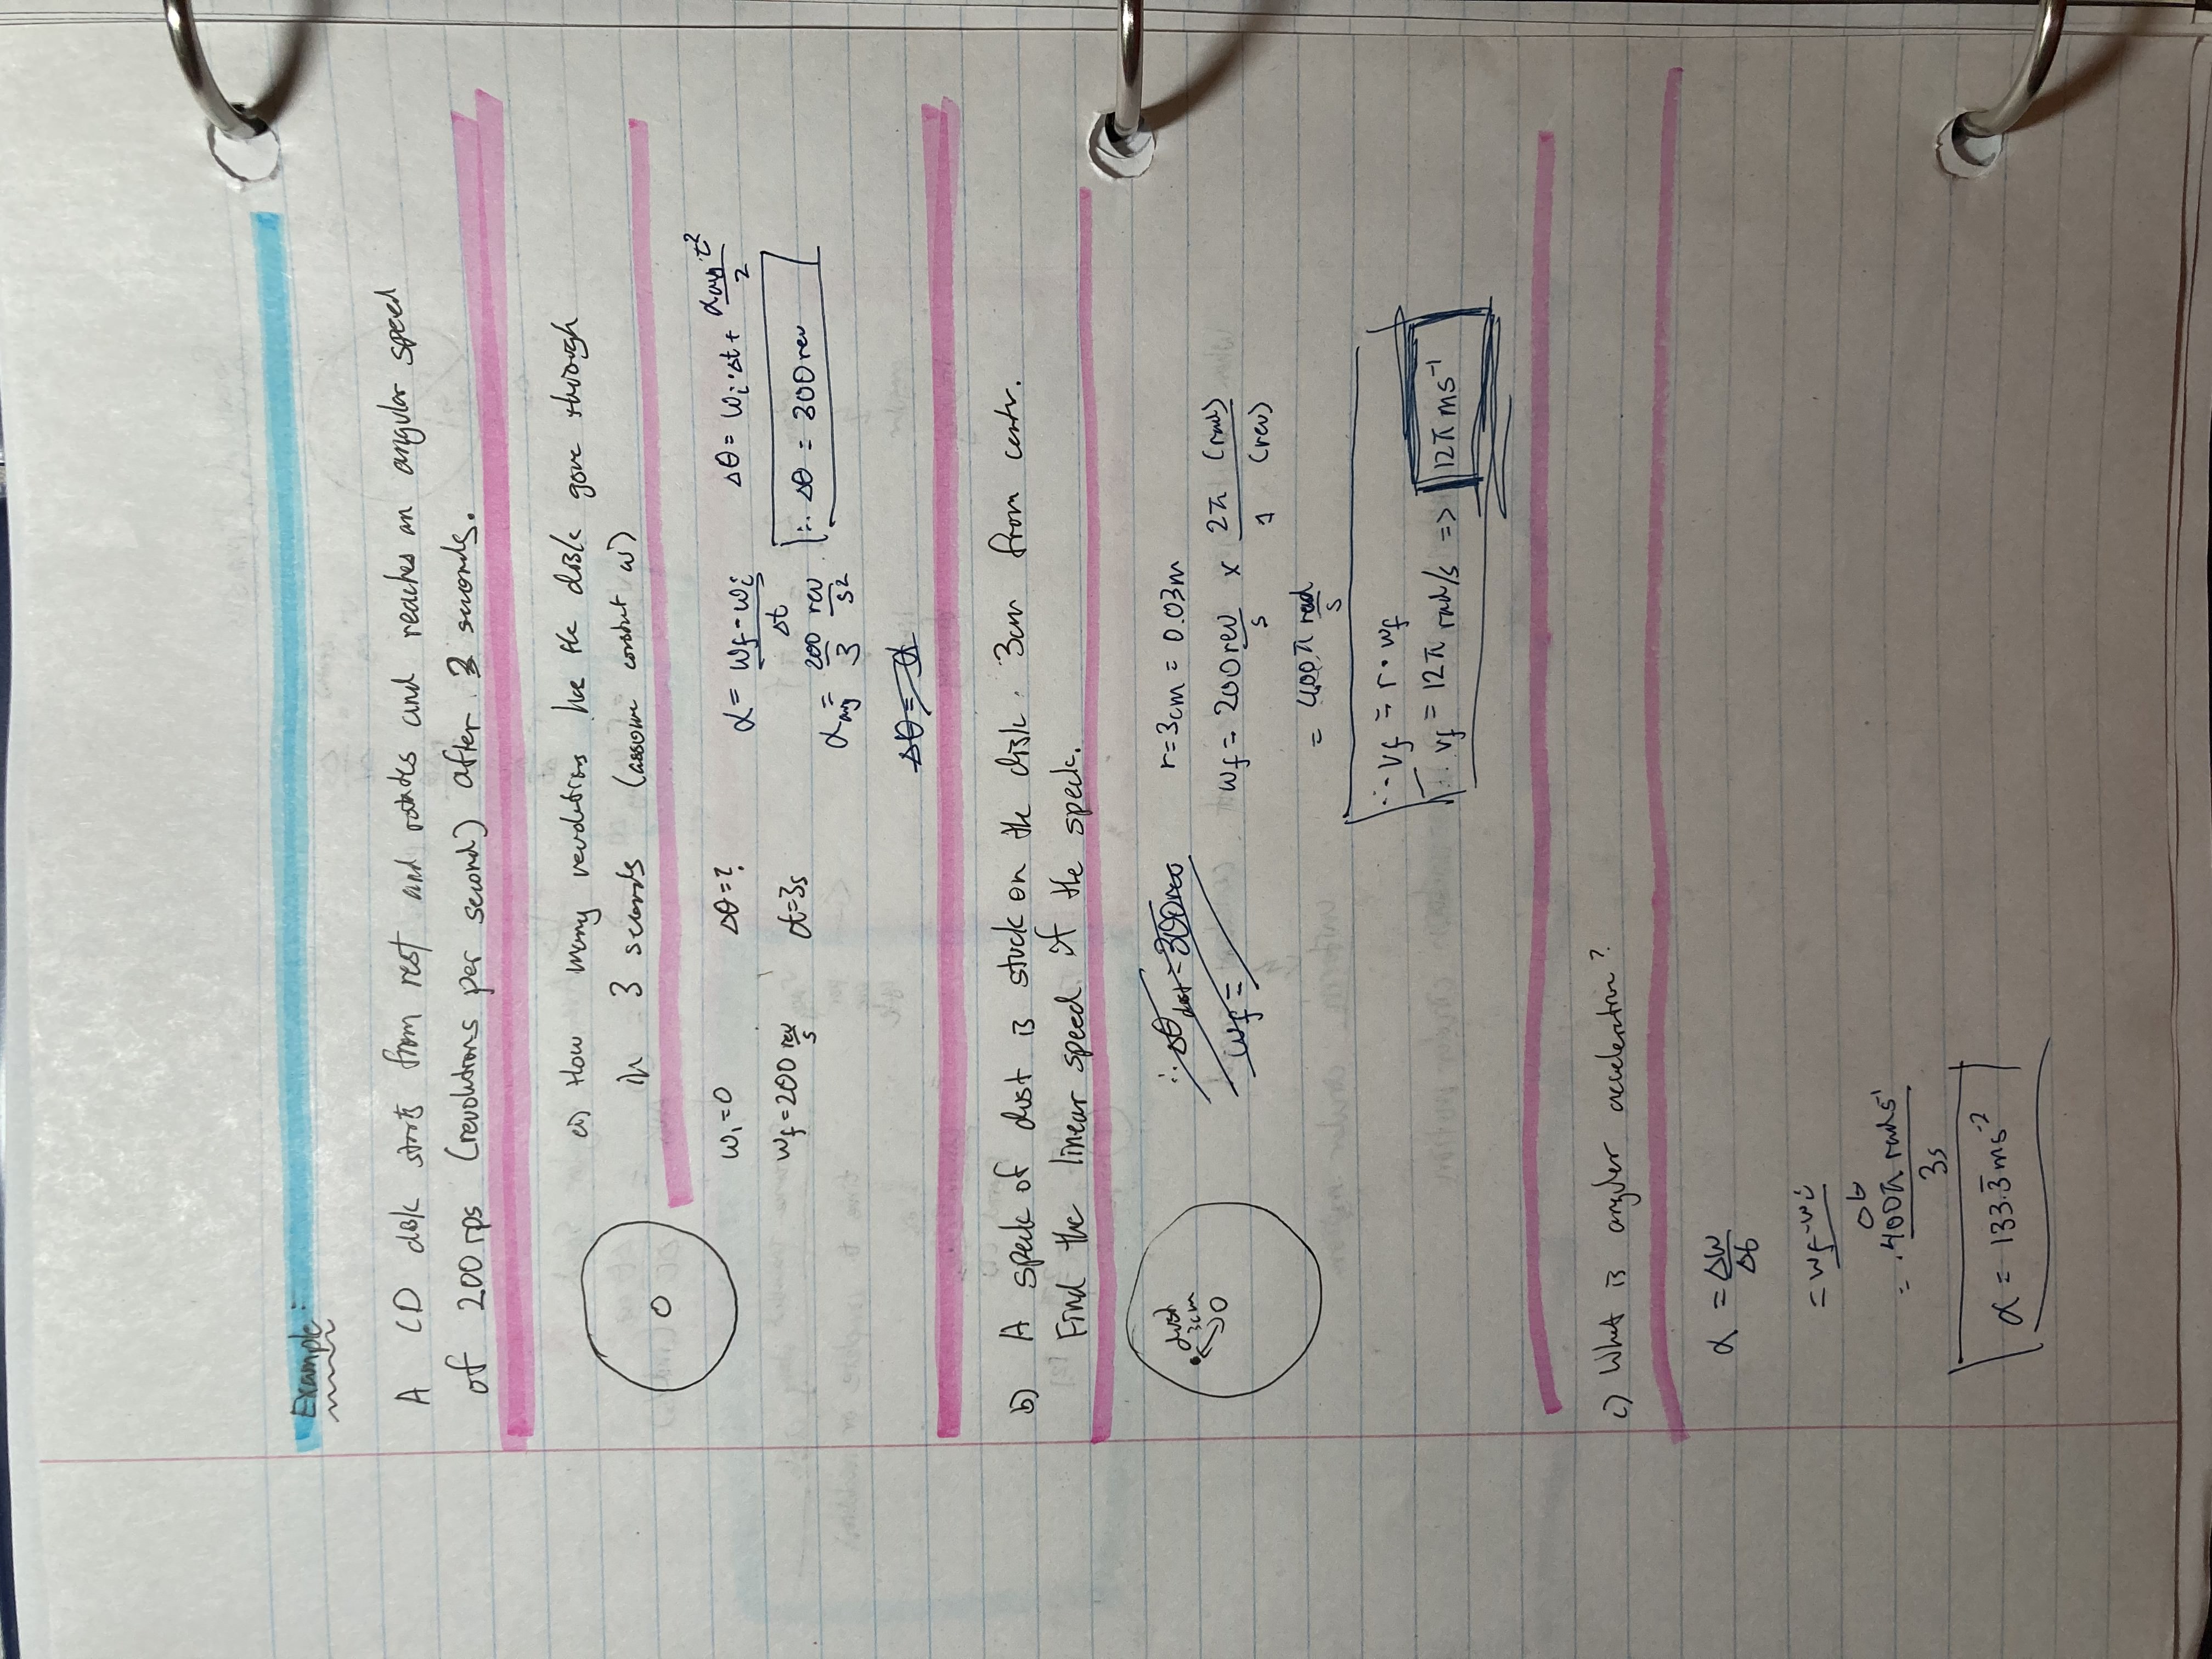 Example:
A CD disk starts from rest and rotates and reaches an angular speed
of 200 rps (revolutions per second) after 3 seconds.
a) How many revolutions has the disk gone through
in 3 seconds (assume constant ω)
ω₁=0
Δθ=?
α = (ωf-ωi)/Δt
Δθ = ωi·Δt + αavg·t²/2
ωf=200 rev/s
t=3s
αavg = 200/3 rev/s²
∴ Δθ = 300 rev
Δθ = α
b) A speck of dust is stuck on the disk. 3cm from centr.
Find the linear speed of the speck.
dust
3cm
∴ Δθdust = 300rev
ωf =
r=3cm = 0.03m
ωf = 200 rev/s × 2π (rad)/1 (rev)
= 400π rad/s
∴ vf = r·ωf
∴ vf = 12π rad/s => 12π ms⁻¹
c) What is angular acceleration?
α = Δω/Δt
= (ωf-ωi)/Δt
= 400π rads⁻¹/3s
α = 133.3̅ ms⁻²